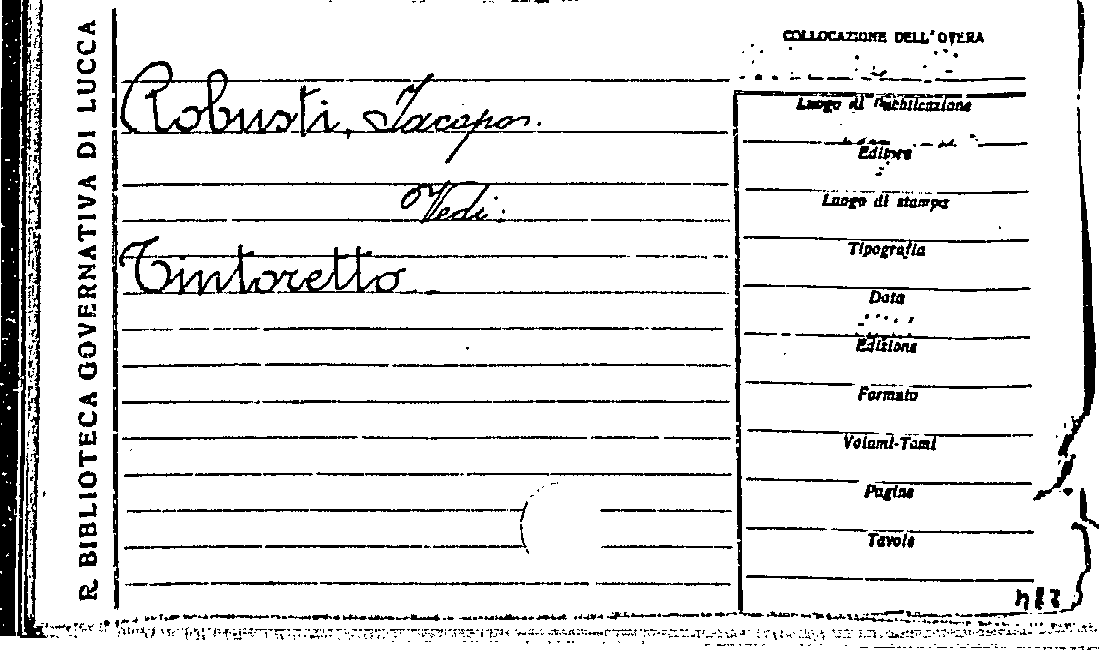 R. BIBLIOTECA GOVERNATIVA DI LUCCA
Robusti, Jacopo.
Vedi:
Tintoretto
COLLOCAZIONE DELL'OPERA
Luogo di pubblicazione
Editore
Luogo di stampa
Tipografia
Data
Edizione
Formato
Volumi-Tomi
Pagine
Tavole